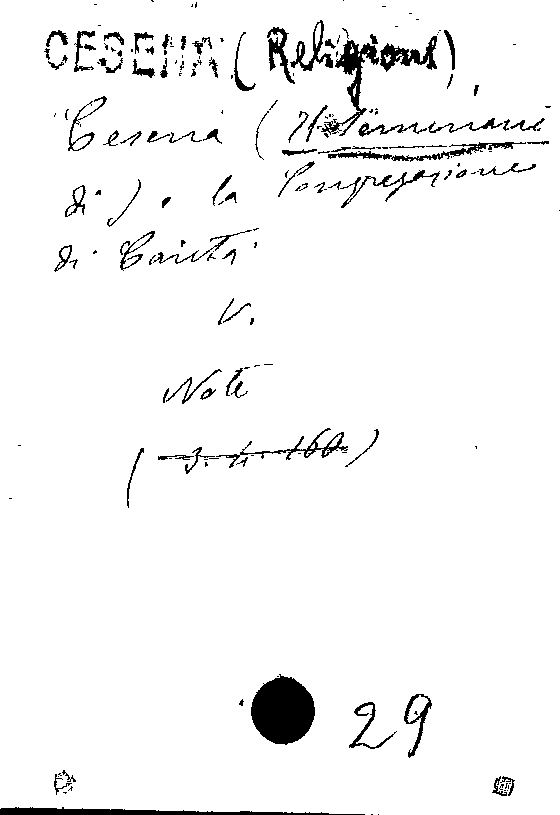 CESENA (Religione)
Cesena (Il Seminario
di) e la Congregazione
di Carità
V.
Note
(3. 4. 160)
29